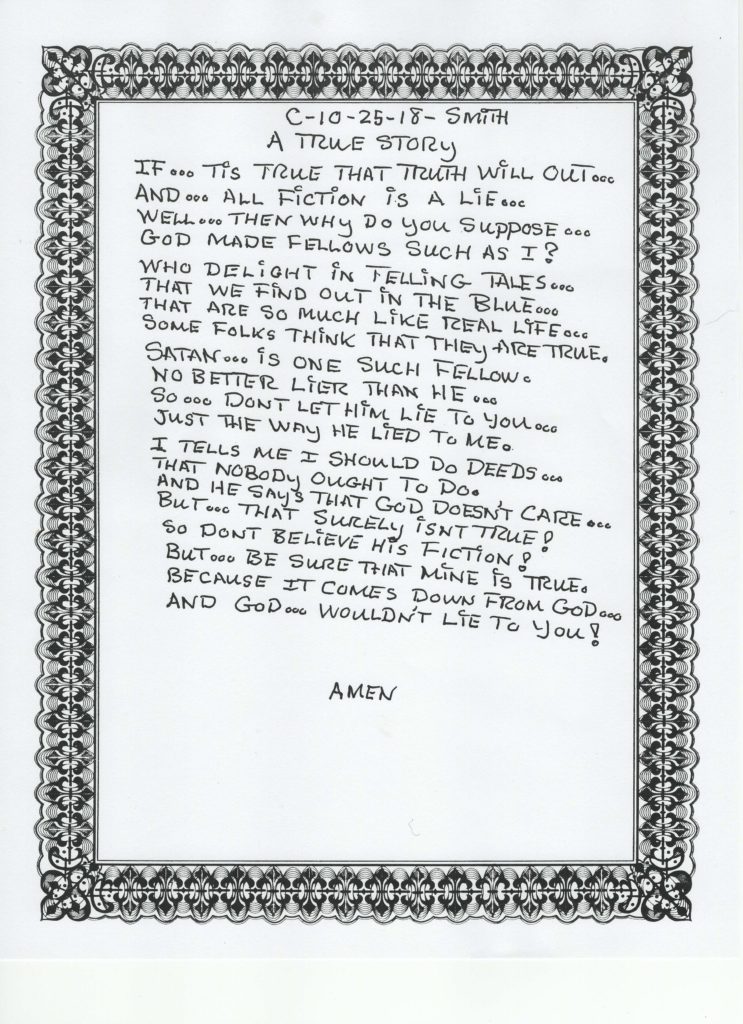 C-10-25-18- SMITH
A TRUE STORY
IF... TIS TRUE THAT TRUTH WILL OUT...
AND... ALL FICTION IS A LIE...
WELL... THEN WHY DO YOU SUPPOSE...
GOD MADE FELLOWS SUCH AS I?
WHO DELIGHT IN TELLING TALES...
THAT WE FIND OUT IN THE BLUE...
THAT ARE SO MUCH LIKE REAL LIFE...
SOME FOLKS THINK THAT THEY ARE TRUE.
SATAN... IS ONE SUCH FELLOW.
NO BETTER LIER THAN HE...
SO... DONT LET HIM LIE TO YOU...
JUST THE WAY HE LIED TO ME.
I TELLS ME I SHOULD DO DEEDS...
THAT NOBODY OUGHT TO DO.
AND HE SAYS THAT GOD DOESN'T CARE...
BUT... THAT SURELY ISNT TRUE!
SO DONT BELIEVE HIS FICTION!
BUT... BE SURE THAT MINE IS TRUE.
BECAUSE IT COMES DOWN FROM GOD...
AND GOD... WOULDN'T LIE TO YOU!
AMEN